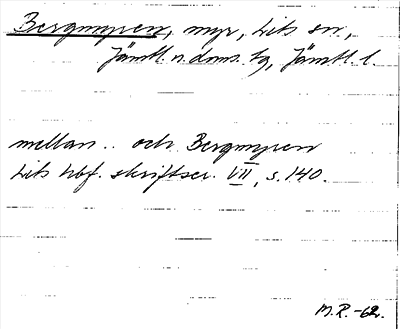 Bergmyren, myr, Lits sn,
Jämtl. n. doms. tg, Jämtl. l.
mellan .. och Bergmyren
Lits hbf. skriftser. VII, s. 140.
M.R. -62.